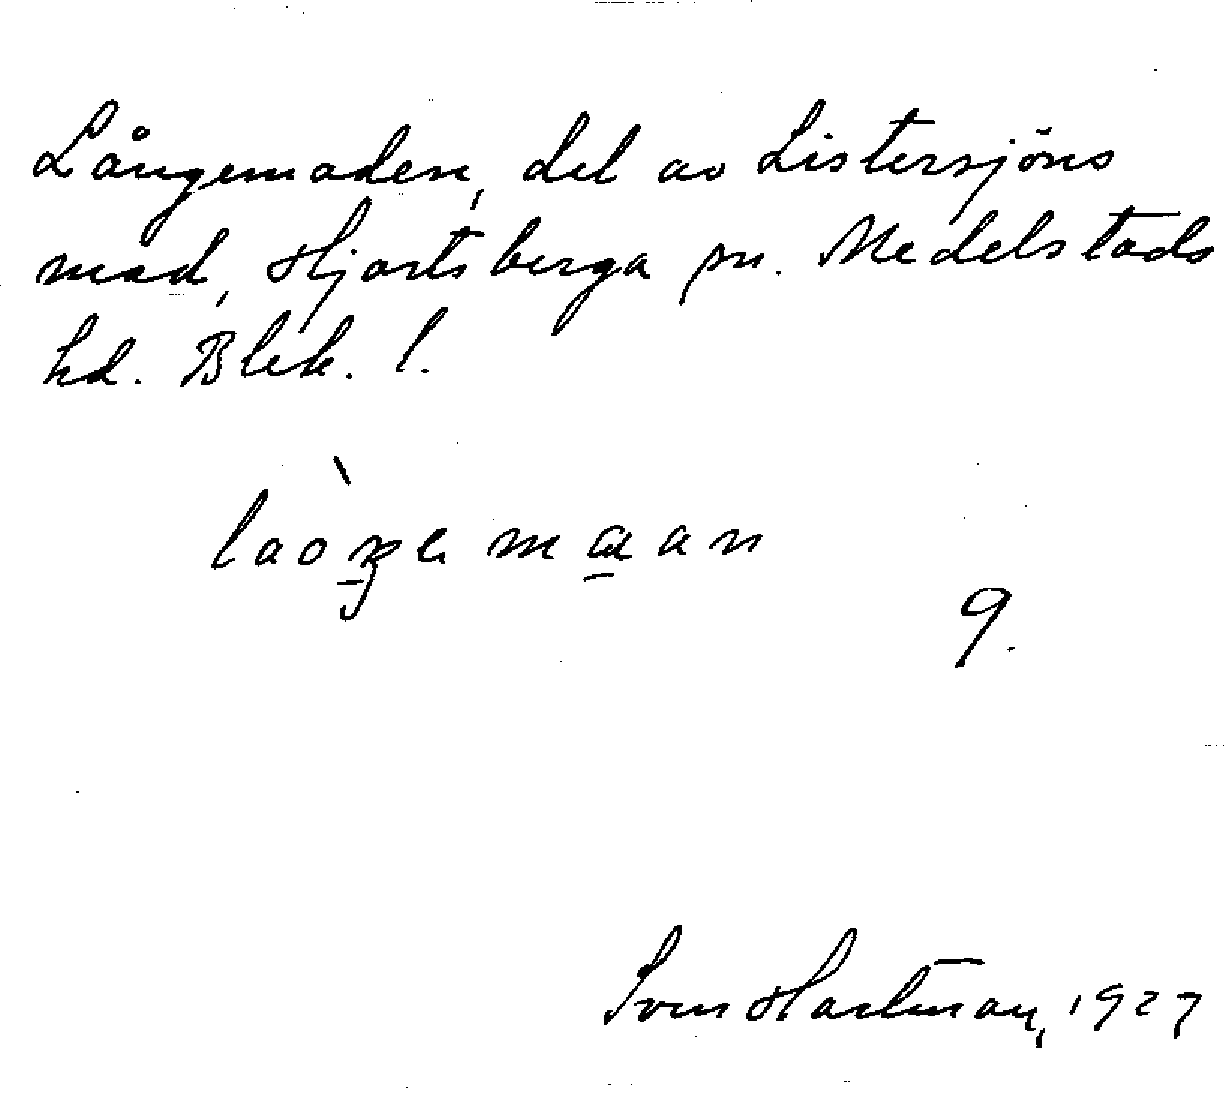 Långemaden, del av Listersjöns
mad, Hjortsberga sn. Medelstads
hd. Blek. l.
9.
Sven Hartman, 1927